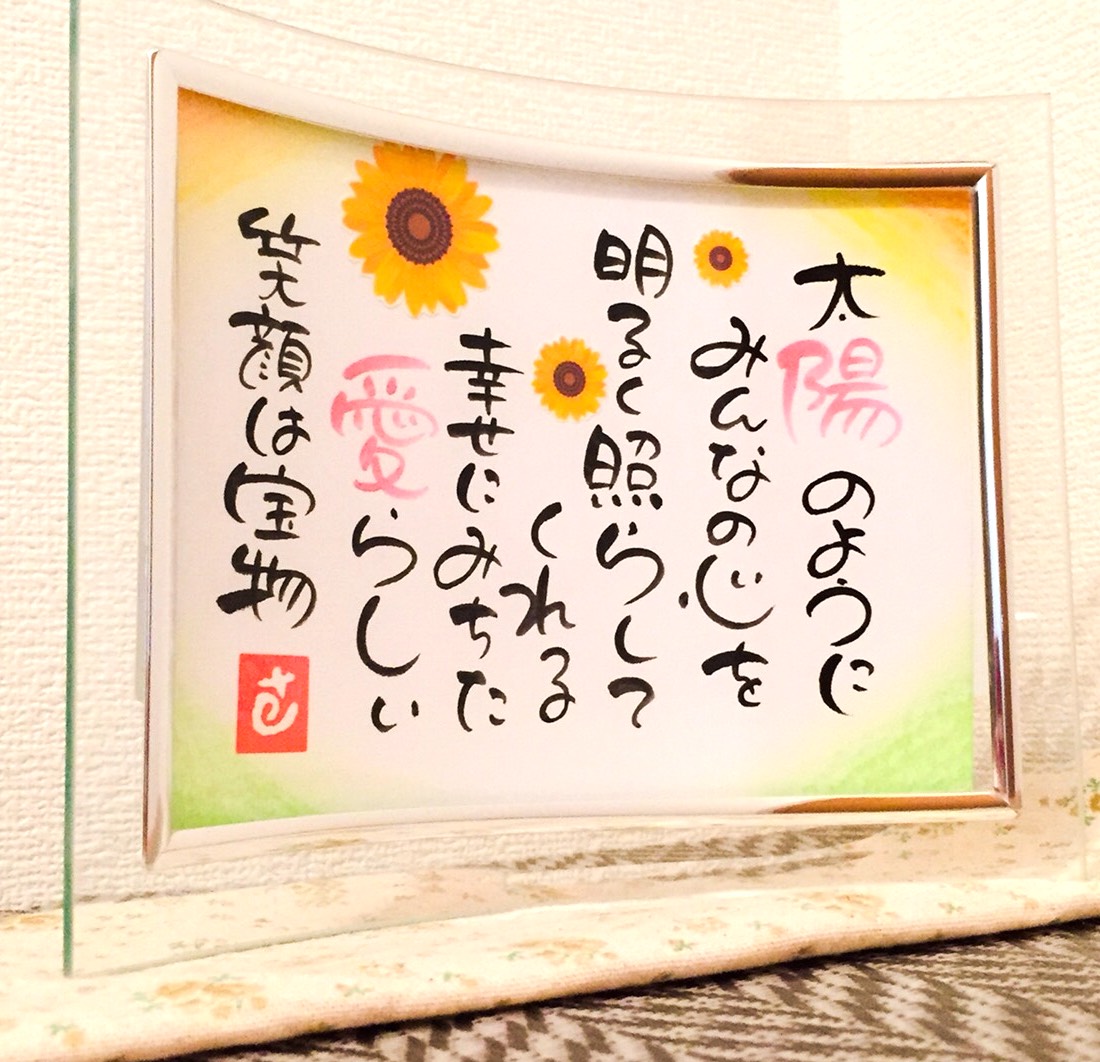 太陽のように
みんなの心を
明るく照らして
くれる
幸せにみちた
愛らしい
笑顔は宝物